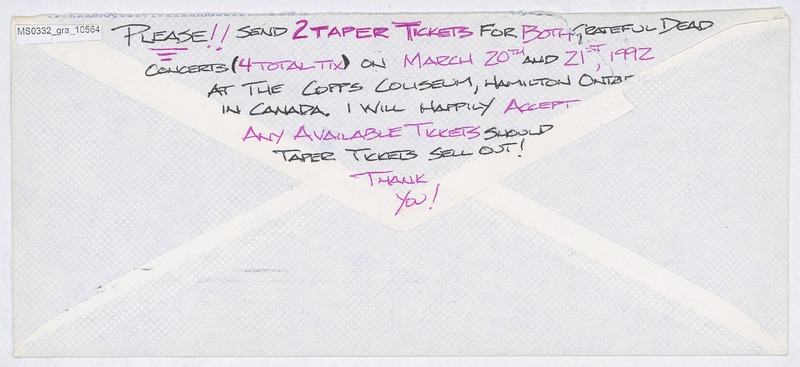 MS0332_gra_10564
PLEASE!! SEND 2 TAPER TICKETS FOR BOTH GRATEFUL DEAD
CONCERTS (4 TOTAL TIX) ON MARCH 20TH AND 21ST, 1992
AT THE COPPS COLISEUM, HAMILTON
IN CANADA. I WILL HAPPILY ACCEPT
ANY AVAILABLE TICKETS, SHOULD
TAPER TICKETS SELL OUT!
THANK
YOU!